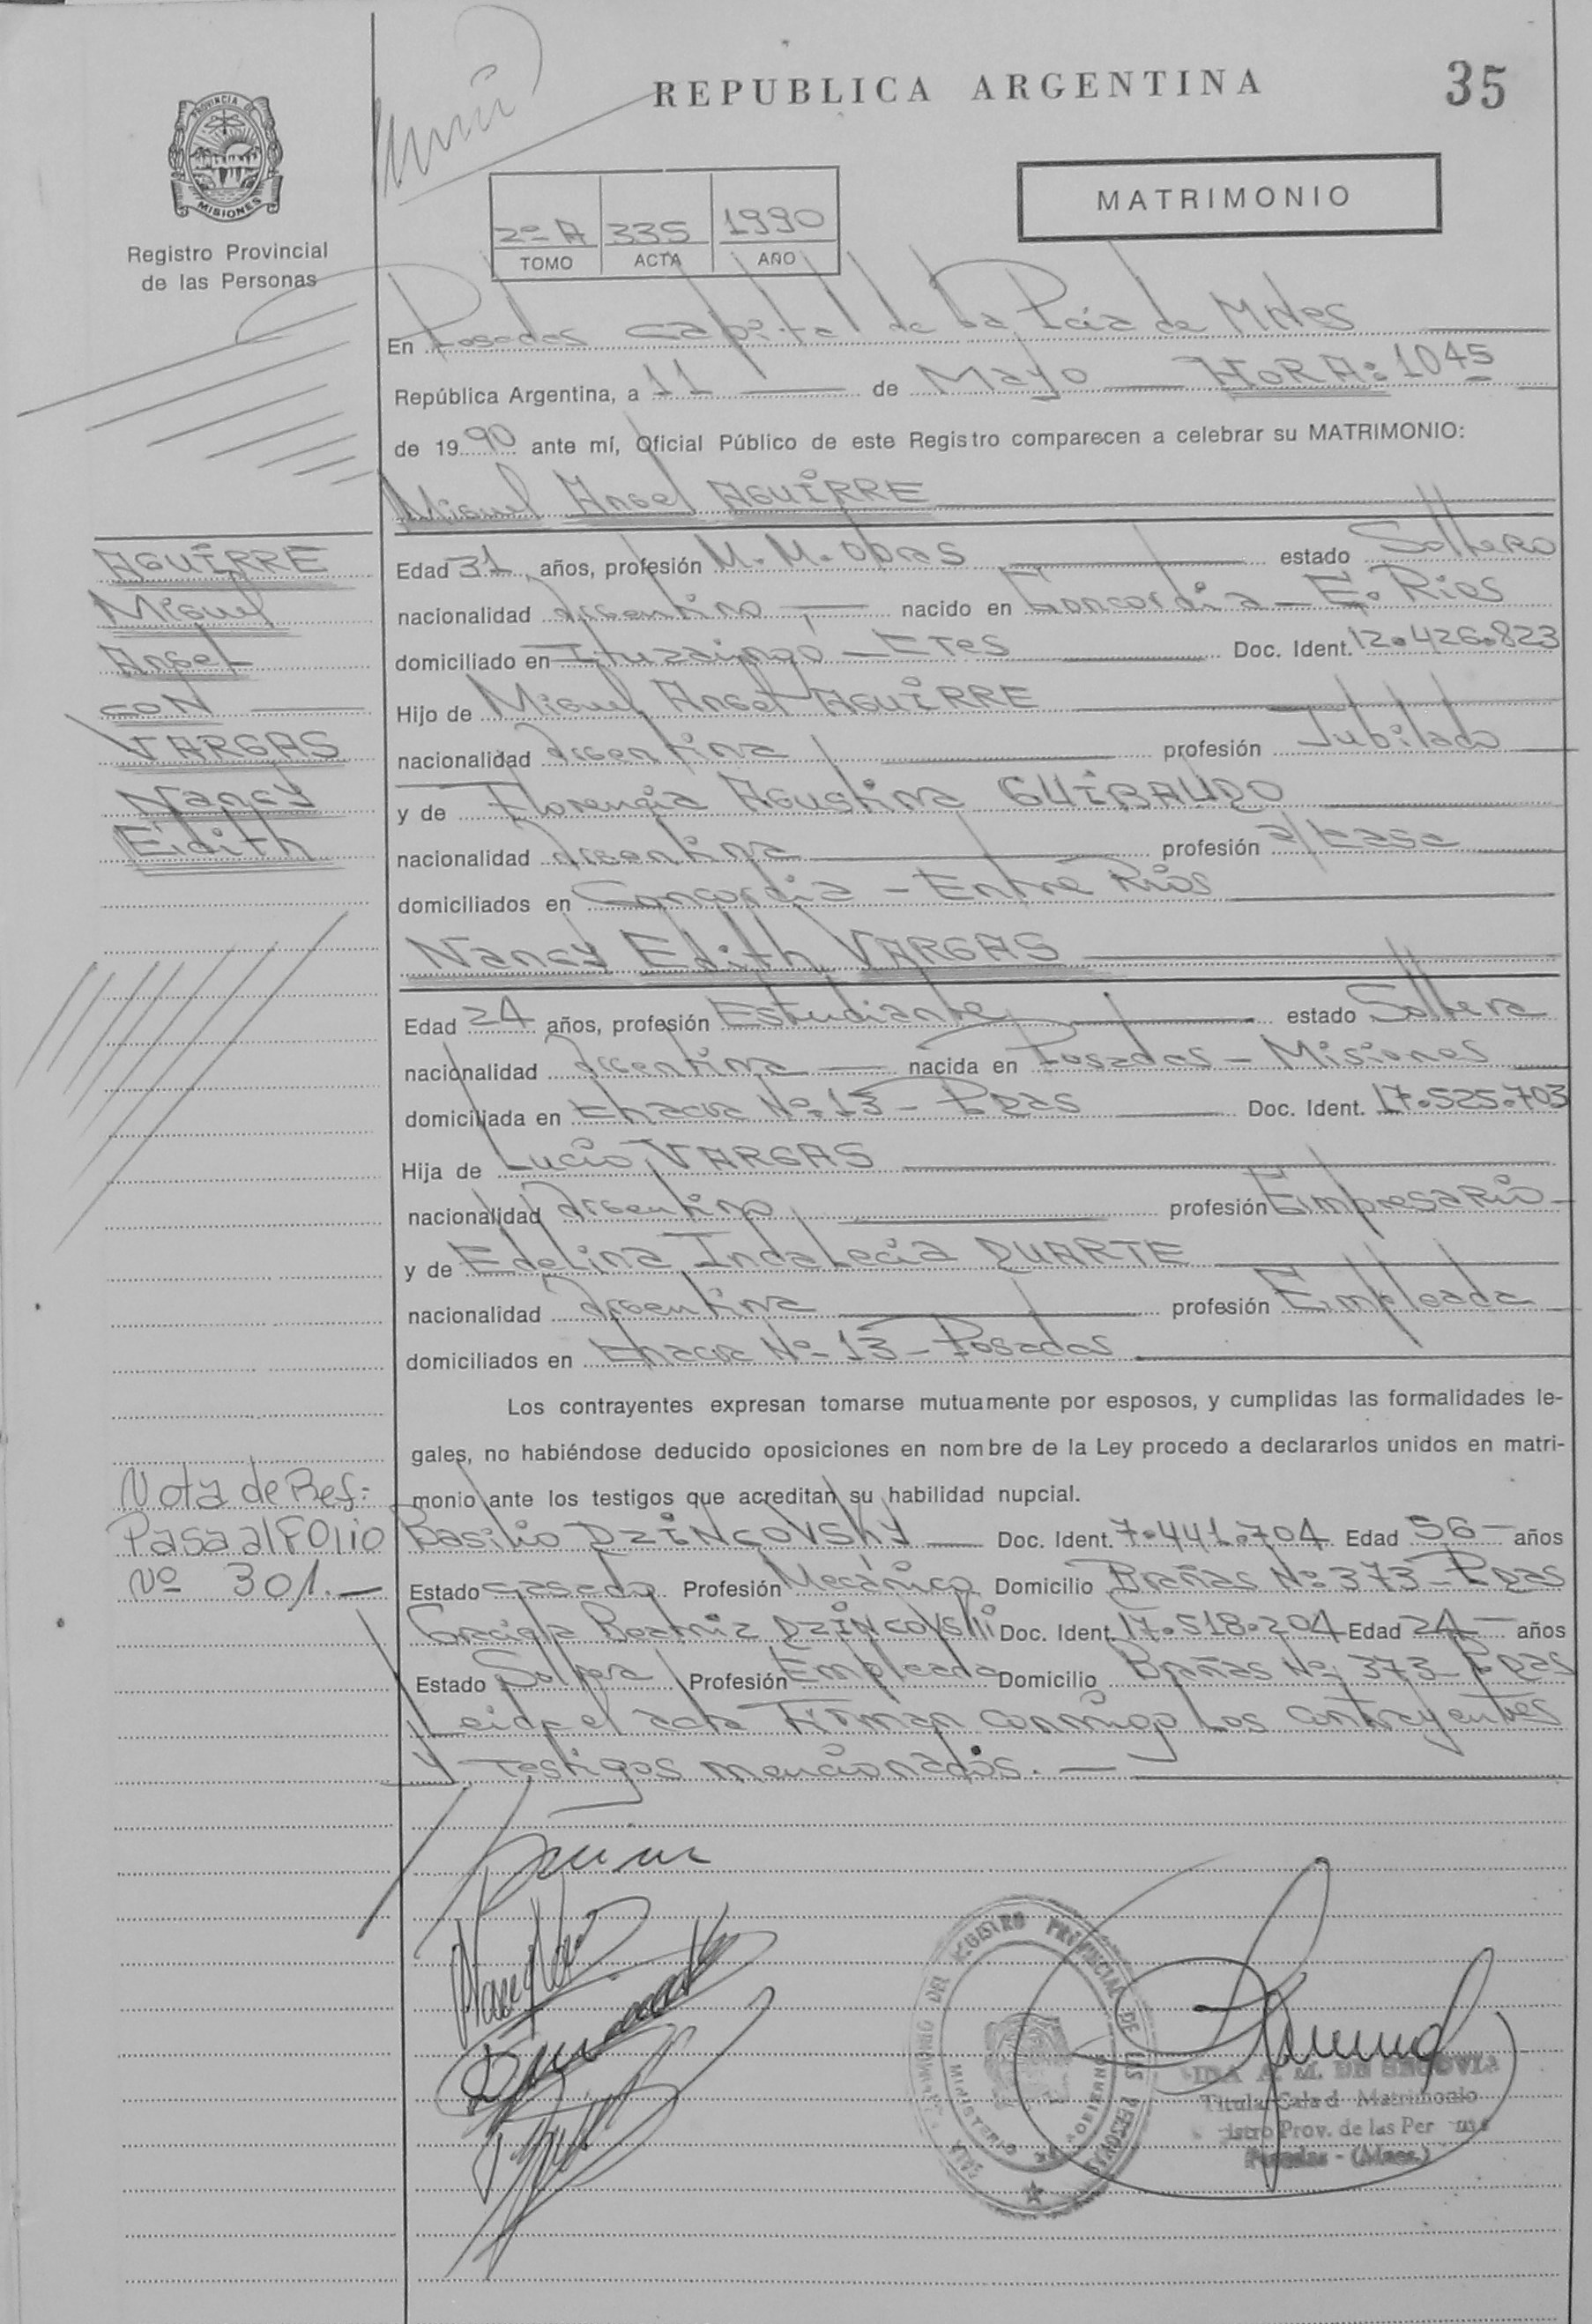 REPUBLICA ARGENTINA
35
PROVINCIA DE
MISIONES
Registro Provincial
de las Personas
2º A 335 1990
TOMO ACTA AÑO
MATRIMONIO
En Posadas Capital de la Pcia de Mnes
República Argentina, a 11 de Mayo HORA: 1045
de 1990 ante mí, Oficial Público de este Registro comparecen a celebrar su MATRIMONIO:
Miguel Angel AGUIRRE
AGUIRRE
Miguel
Angel
CON
VARGAS
Nancy
Edith
Edad 31 años, profesión M.M. Obras estado Soltero
nacionalidad Argentino nacido en Concordia - E. Rios
domiciliado en Ituzaingó - CTES Doc. Ident. 12.426.823
Hijo de Miguel Angel AGUIRRE
nacionalidad Argentina profesión Jubilado
y de Florencia Agustina GUIBAUDO
nacionalidad Argentina profesión a/casa
domiciliados en Concordia - Entre Rios
Nancy Edith VARGAS
Edad 24 años, profesión Estudiante estado Soltera
nacionalidad Argentina nacida en Posadas - Misiones
domiciliada en Chacra Nº 13 - Pdas Doc. Ident. 17.525.703
Hija de Lucio VARGAS
nacionalidad Argentino profesión Empresario
y de Edelina Indalecia DUARTE
nacionalidad Argentina profesión Empleada
domiciliados en Chacra Nº 13 - Posadas
Los contrayentes expresan tomarse mutuamente por esposos, y cumplidas las formalidades le-
gales, no habiéndose deducido oposiciones en nombre de la Ley procedo a declararlos unidos en matri-
monio ante los testigos que acreditan su habilidad nupcial.
Nota de Ref:
Pasa al Folio
Nº 301.-
Basilio DZINCOVSKY Doc. Ident. 7.441.704 Edad 56 años
Estado casado Profesión Mecánico Domicilio Brañas Nº 373 - Pdas
Graciela Beatriz DZINCOVSKI Doc. Ident. 17.518.204 Edad 24 años
Estado Soltera Profesión Empleada Domicilio Brañas Nº 373 - Pdas
Leida el acta Firman conmigo los contrayentes
y testigos mencionados.-
DEL REGISTRO PROVINCIAL DE LAS PERSONAS
MINISTERIO DE GOBIERNO
A. M. DE SEGOVIA
Titular Sala d Matrimonio
istro Prov. de las Per
Posadas - (Mnes.)